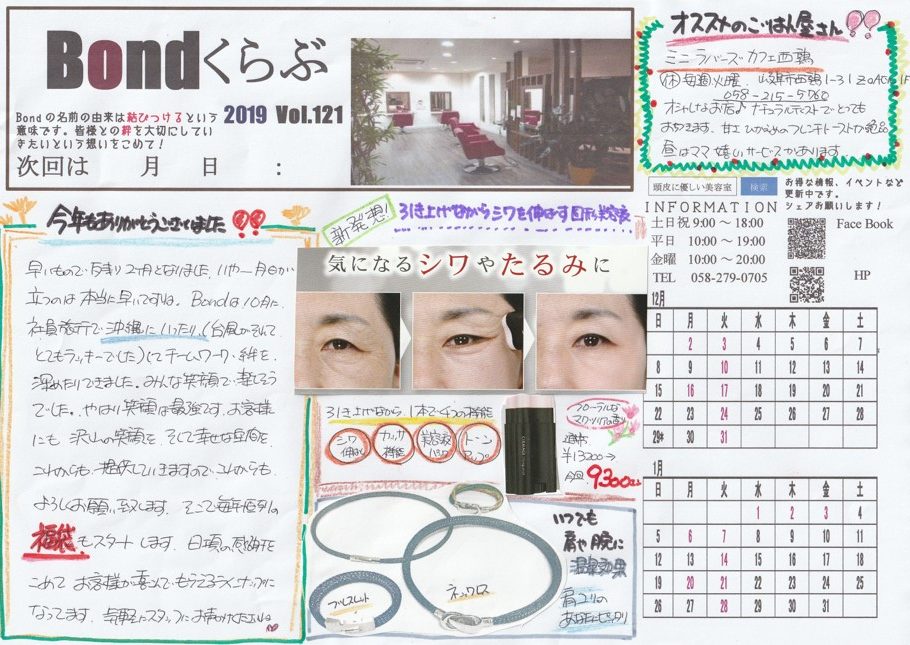 Bondくらぶ
Bondの名前の由来は結びつけるという
意味です。皆様との絆を大切にしてい
きたいという想いをこめて！
2019 Vol.121
次回は 月 日 :
オススメのごはん屋さん!!
ミニラバーズカフェ西鶉
㊡毎週火曜 岐阜市西鶉1-31
058-215-5960
オシャレなお店♪ナチュラルテイストでとても
おちつきます。
昼はママ嬉しいサービスがあります
頭皮に優しい美容室 検索
お得な情報、イベントなど
更新中です。
シェアお願いします！
INFORMATION
土日祝 9:00 〜 18:00
平日 10:00 〜 19:00
金曜 10:00 〜 20:00
TEL 058-279-0705
Face Book
HP
今年もありがとうございました!!
早いもので残り2ヶ月となりました。いや一月日が
立つのは本当に早いですね。Bondは10月に、
社員旅行で沖縄にいったり、(台風がそれて
とてもラッキーでした)にてチームワーク・絆を、
深めたりできました。みんな笑顔で楽しそう
でした。やはり笑顔は最強です。お客様
にも 沢山の笑顔を、そして幸せな空間を、
これからも提供していきますので、これからも
よろしくお願い致します。そして毎年恒例の
福袋もスタートします。日頃の感謝を
こめて お客様が喜んでもらえるラインナップに
なってます。気軽にスタッフにお声かけくださいね
新発想!
引き上げながらシワを伸ばす固形美容液
気になるシワやたるみに
引き上げながら 1本で4つの機能
シワ伸ばし
カッサ機能
美容液パック
トーンアップ
フローラルな
マグノリアの香り
通常
¥13200→
今回
9300
ブレスレット
ネックレス
いつでも
肩や腕に
温泉効果
肩コリの
あなたにピッタリ
12月
日 月 火 水 木 金 土
1 2 3 4 5 6 7
8 9 10 11 12 13 14
15 16 17 18 19 20 21
22 23 24 25 26 27 28
29 30 31
1月
日 月 火 水 木 金 土
1 2 3 4
5 6 7 8 9 10 11
12 13 14 15 16 17 18
19 20 21 22 23 24 25
26 27 28 29 30 31